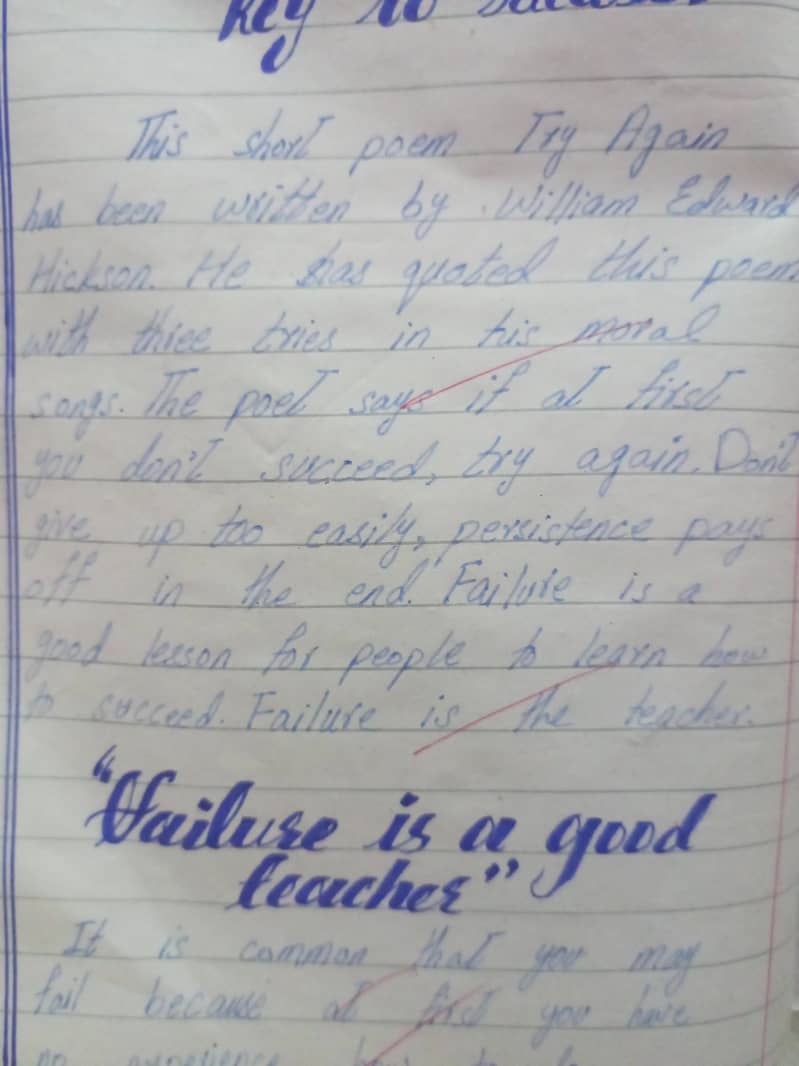 Key to success
This short poem Try Again
has been written by William Edward
Hickson. He has quoted this poem
with three tries in his moral
songs. The poet says if at first
you don't succeed, try again. Don't
give up too easily, persistence pays
off in the end. Failure is a
good lesson for people to learn how
to succeed. Failure is the teacher.
"Failure is a good
teacher"
It is common that you may
fail because at first you have
no experience how to